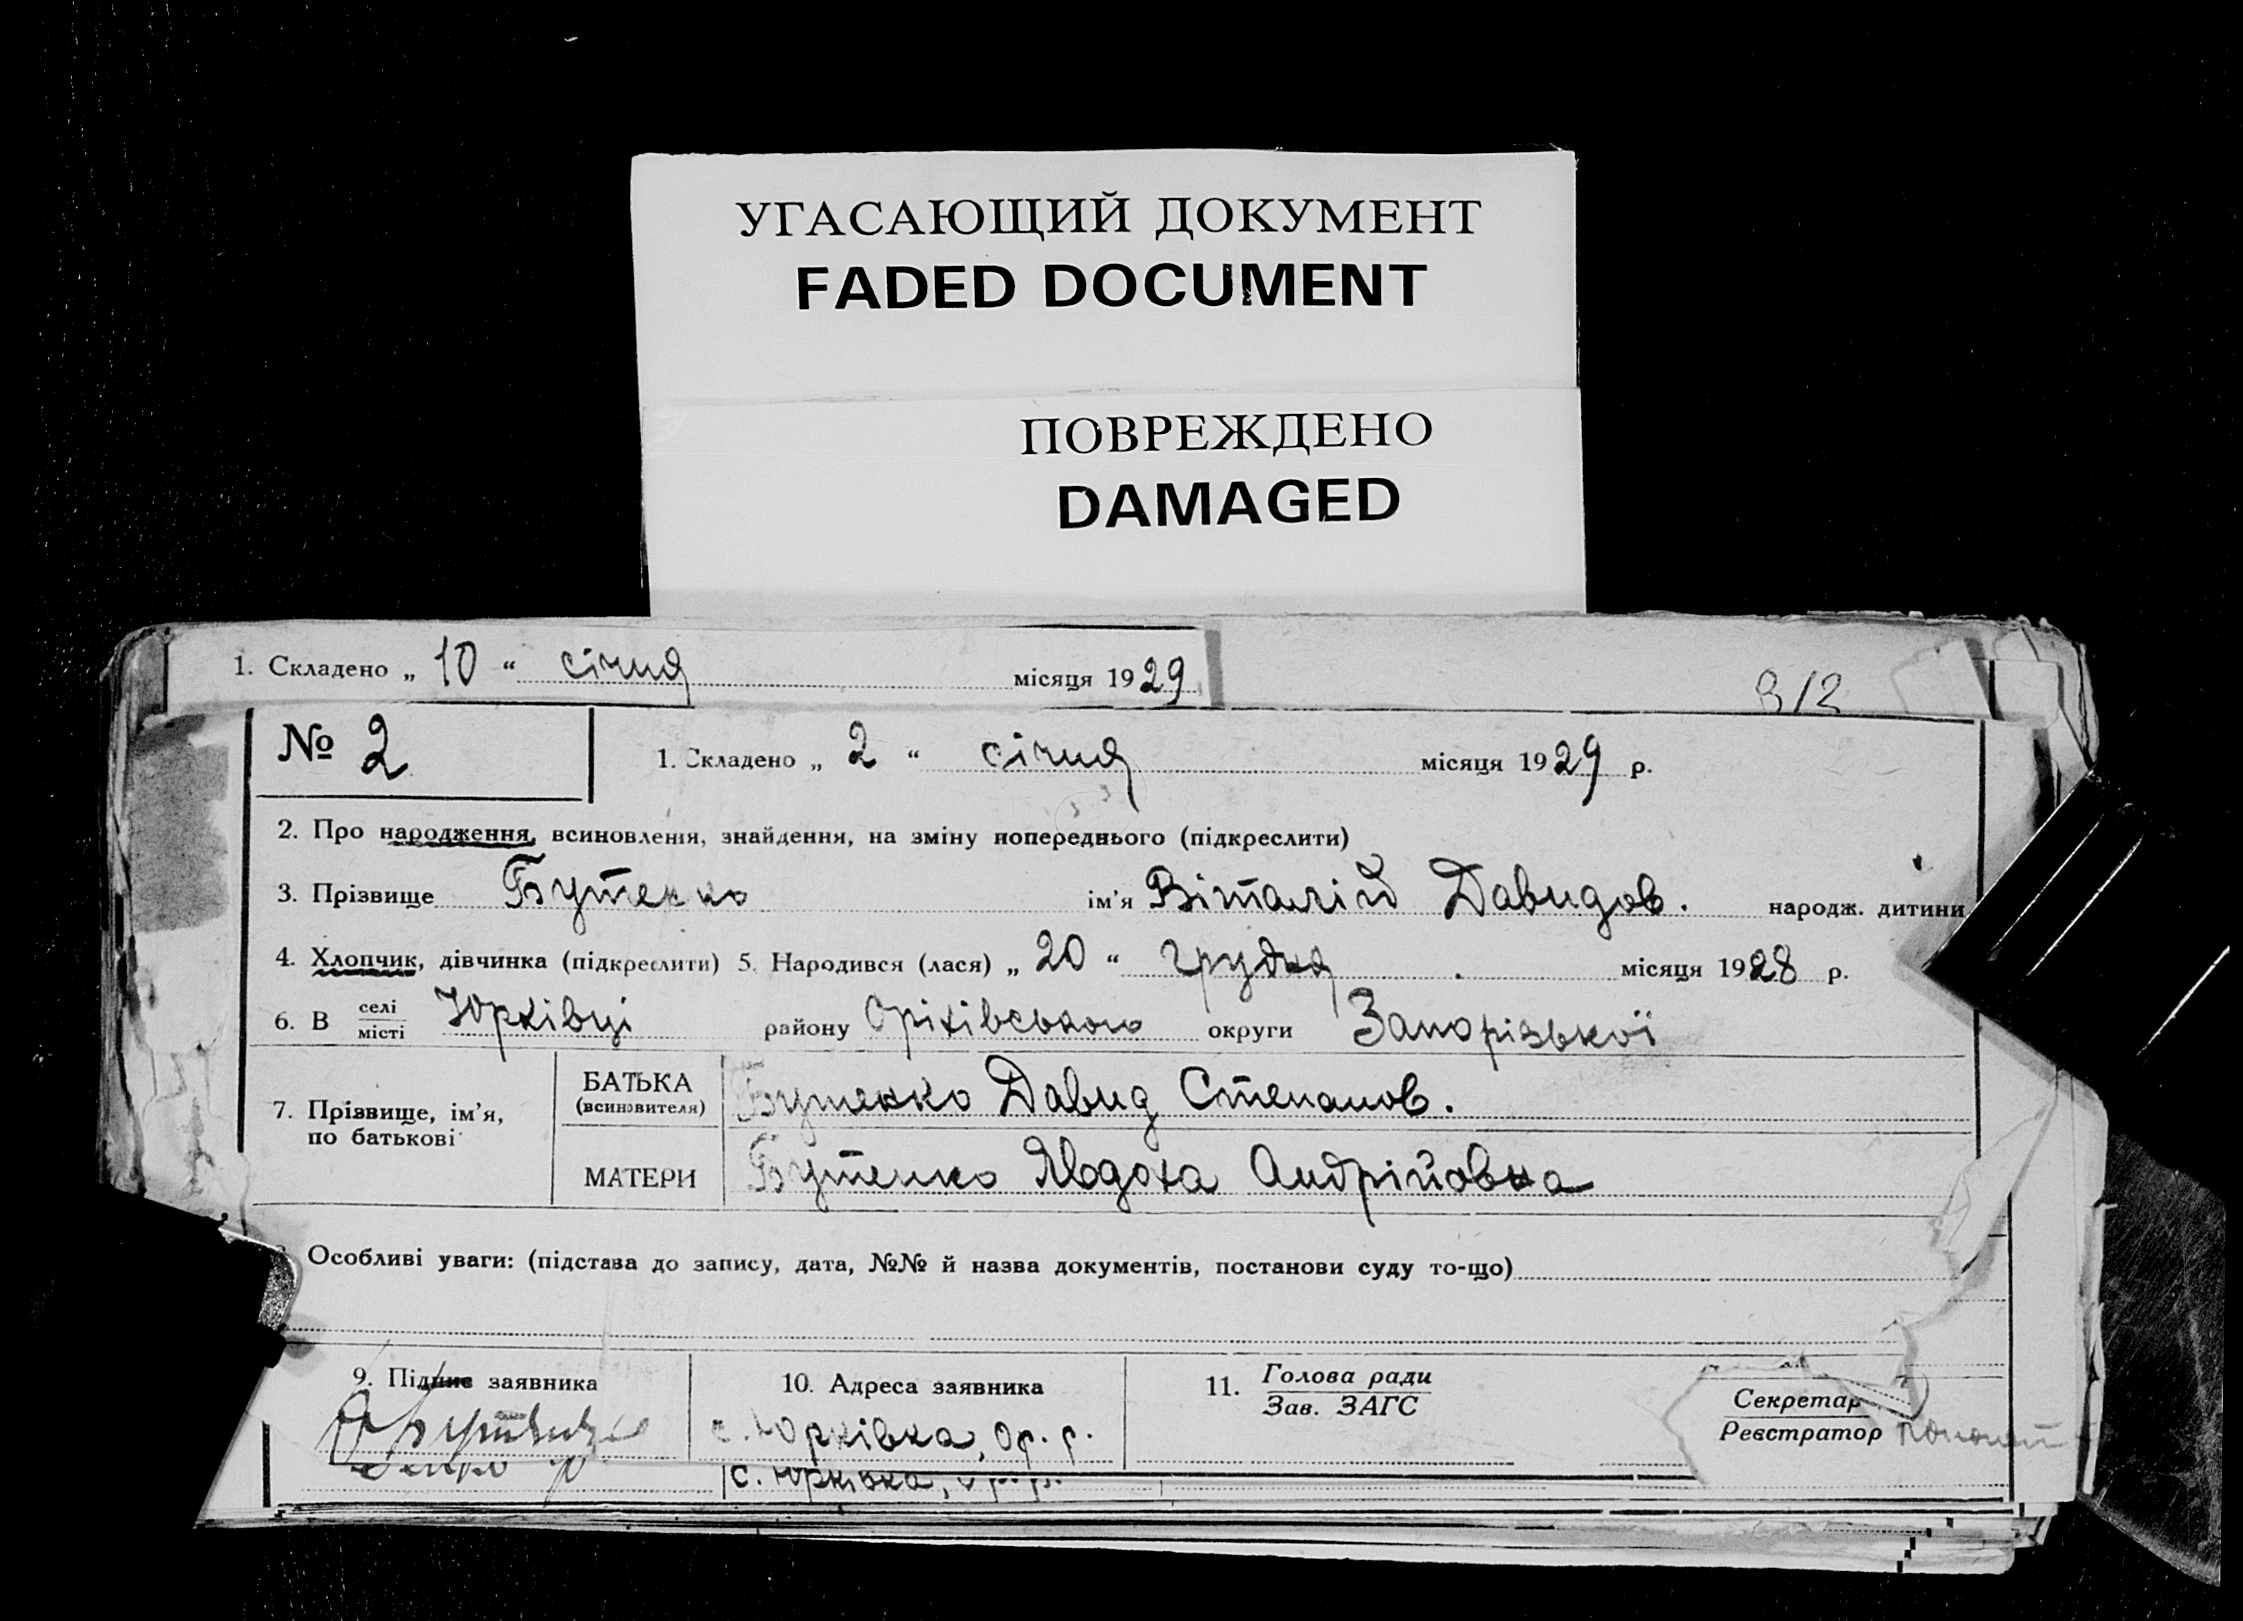 УГАСАЮЩИЙ ДОКУМЕНТ
FADED DOCUMENT
ПОВРЕЖДЕНО
DAMAGED
1. Складено „ 10 “ січня місяця 1929
312
№ 2 1. Складено „ 2 “ січня місяця 1929 р.
2. Про народження, всиновлення, знайдення, на зміну попереднього (підкреслити)
3. Прізвище Бутенко ім'я Віталій Давидов. народж. дитини
4. Хлопчик, дівчинка (підкреслити) 5. Народився (лася) „ 20 “ грудня місяця 1928 р.
6. В селі/місті Юрківці району Оріхівського округи Запорізької
7. Прізвище, ім'я, по батькові
БАТЬКА (всиновителя) Бутенко Давид Степанов.
МАТЕРИ Бутенко Явдоха Андрійовна
Особливі уваги: (підстава до запису, дата, №№ й назва документів, постанови суду то-що)
9. Підпис заявника 10. Адреса заявника 11. Голова ради / Зав. ЗАГС Секретар / Реєстратор
с. Юрківка, Ор. р.
с. Юрківка, Ор. р.